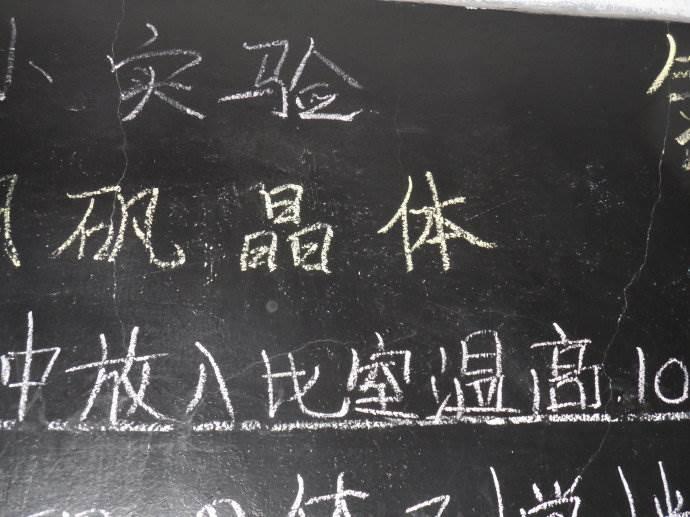 小实验
矾晶体
中放入比室温高10
体